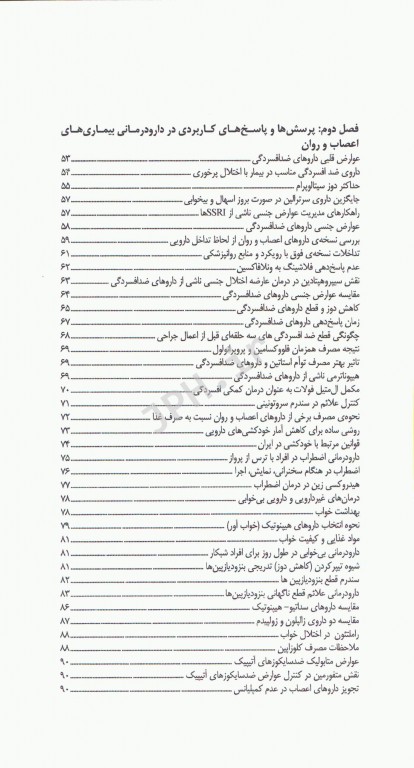 فصل دوم: پرسش‌ها و پاسخ‌های کاربردی در دارودرمانی بیماری‌های
اعصاب و روان
عوارض قلبی داروهای ضدافسردگی ۵۳
داروی ضد افسردگی مناسب در بیمار با اختلال پرخوری ۵۴
حداکثر دوز سیتالوپرام ۵۵
جایگزین داروی سرترالین در صورت بروز اسهال و بیخوابی ۵۷
راهکارهای مدیریت عوارض جنسی ناشی از SSRIها ۵۷
عوارض جنسی داروهای ضدافسردگی ۵۸
بررسی نسخه‌ی داروهای اعصاب و روان از لحاظ تداخل دارویی ۵۹
تداخلات نسخه‌ی فوق با رویکرد و منابع روانپزشکی ۶۱
عدم پاسخ‌دهی فلاشینگ به ونلافاکسین ۶۲
نقش سیپروهپتادین در درمان عارضه اختلال جنسی ناشی از داروهای ضدافسردگی ۶۳
مقایسه عوارض جنسی داروهای ضدافسردگی ۶۴
کاهش دوز و قطع داروهای ضدافسردگی ۶۵
زمان پاسخ‌دهی داروهای ضدافسردگی ۶۷
چگونگی قطع ضد افسردگی های سه حلقه‌ای قبل از اعمال جراحی ۶۸
نتیجه مصرف همزمان فلووکسامین و پروپرانولول ۶۹
تاثیر بهتر مصرف توأم استاتین و داروهای ضدافسردگی ۶۹
هیپوناترمی ناشی از داروهای ضدافسردگی ۶۹
مکمل ال‌متیل فولات به عنوان درمان کمکی افسردگی ۷۰
کنترل علائم در سندرم سروتونینی ۷۱
نحوه‌ی مصرف برخی از داروهای اعصاب و روان نسبت به صرف غذا ۷۲
روشی ساده برای کاهش آمار خودکشی‌های دارویی ۷۳
قوانین مرتبط با خودکشی در ایران ۷۴
دارودرمانی اضطراب در افراد با ترس از پرواز ۷۵
اضطراب در هنگام سخنرانی، نمایش، اجرا ۷۶
هیدروکسی زین در درمان اضطراب ۷۷
درمان‌های غیردارویی و دارویی بی‌خوابی ۷۸
بهداشت خواب ۷۸
نحوه انتخاب داروهای هیپنوتیک (خواب آور) ۷۹
مواد غذایی و کیفیت خواب ۸۱
دارودرمانی بی‌خوابی در طول روز برای افراد شبکار ۸۱
شیوه تیپر کردن (کاهش دوز) تدریجی بنزودیازپین‌ها ۸۱
سندرم قطع بنزودیازپین ها ۸۲
دارودرمانی علائم قطع ناگهانی بنزودیازپین‌ها ۸۳
مقایسه داروهای سداتیو- هیپنوتیک ۸۶
مقایسه دو داروی زالپلون و زولپیدم ۸۷
راملتئون در اختلال خواب ۸۸
ملاحظات مصرف کلوزاپین ۸۸
عوارض متابولیک ضدسایکوزهای آتیپیک ۹۰
نقش متفورمین در کنترل عوارض ضدسایکوزهای آتیپیک ۹۰
تجویز داروهای اعصاب در عدم کمپلیانس ۹۰